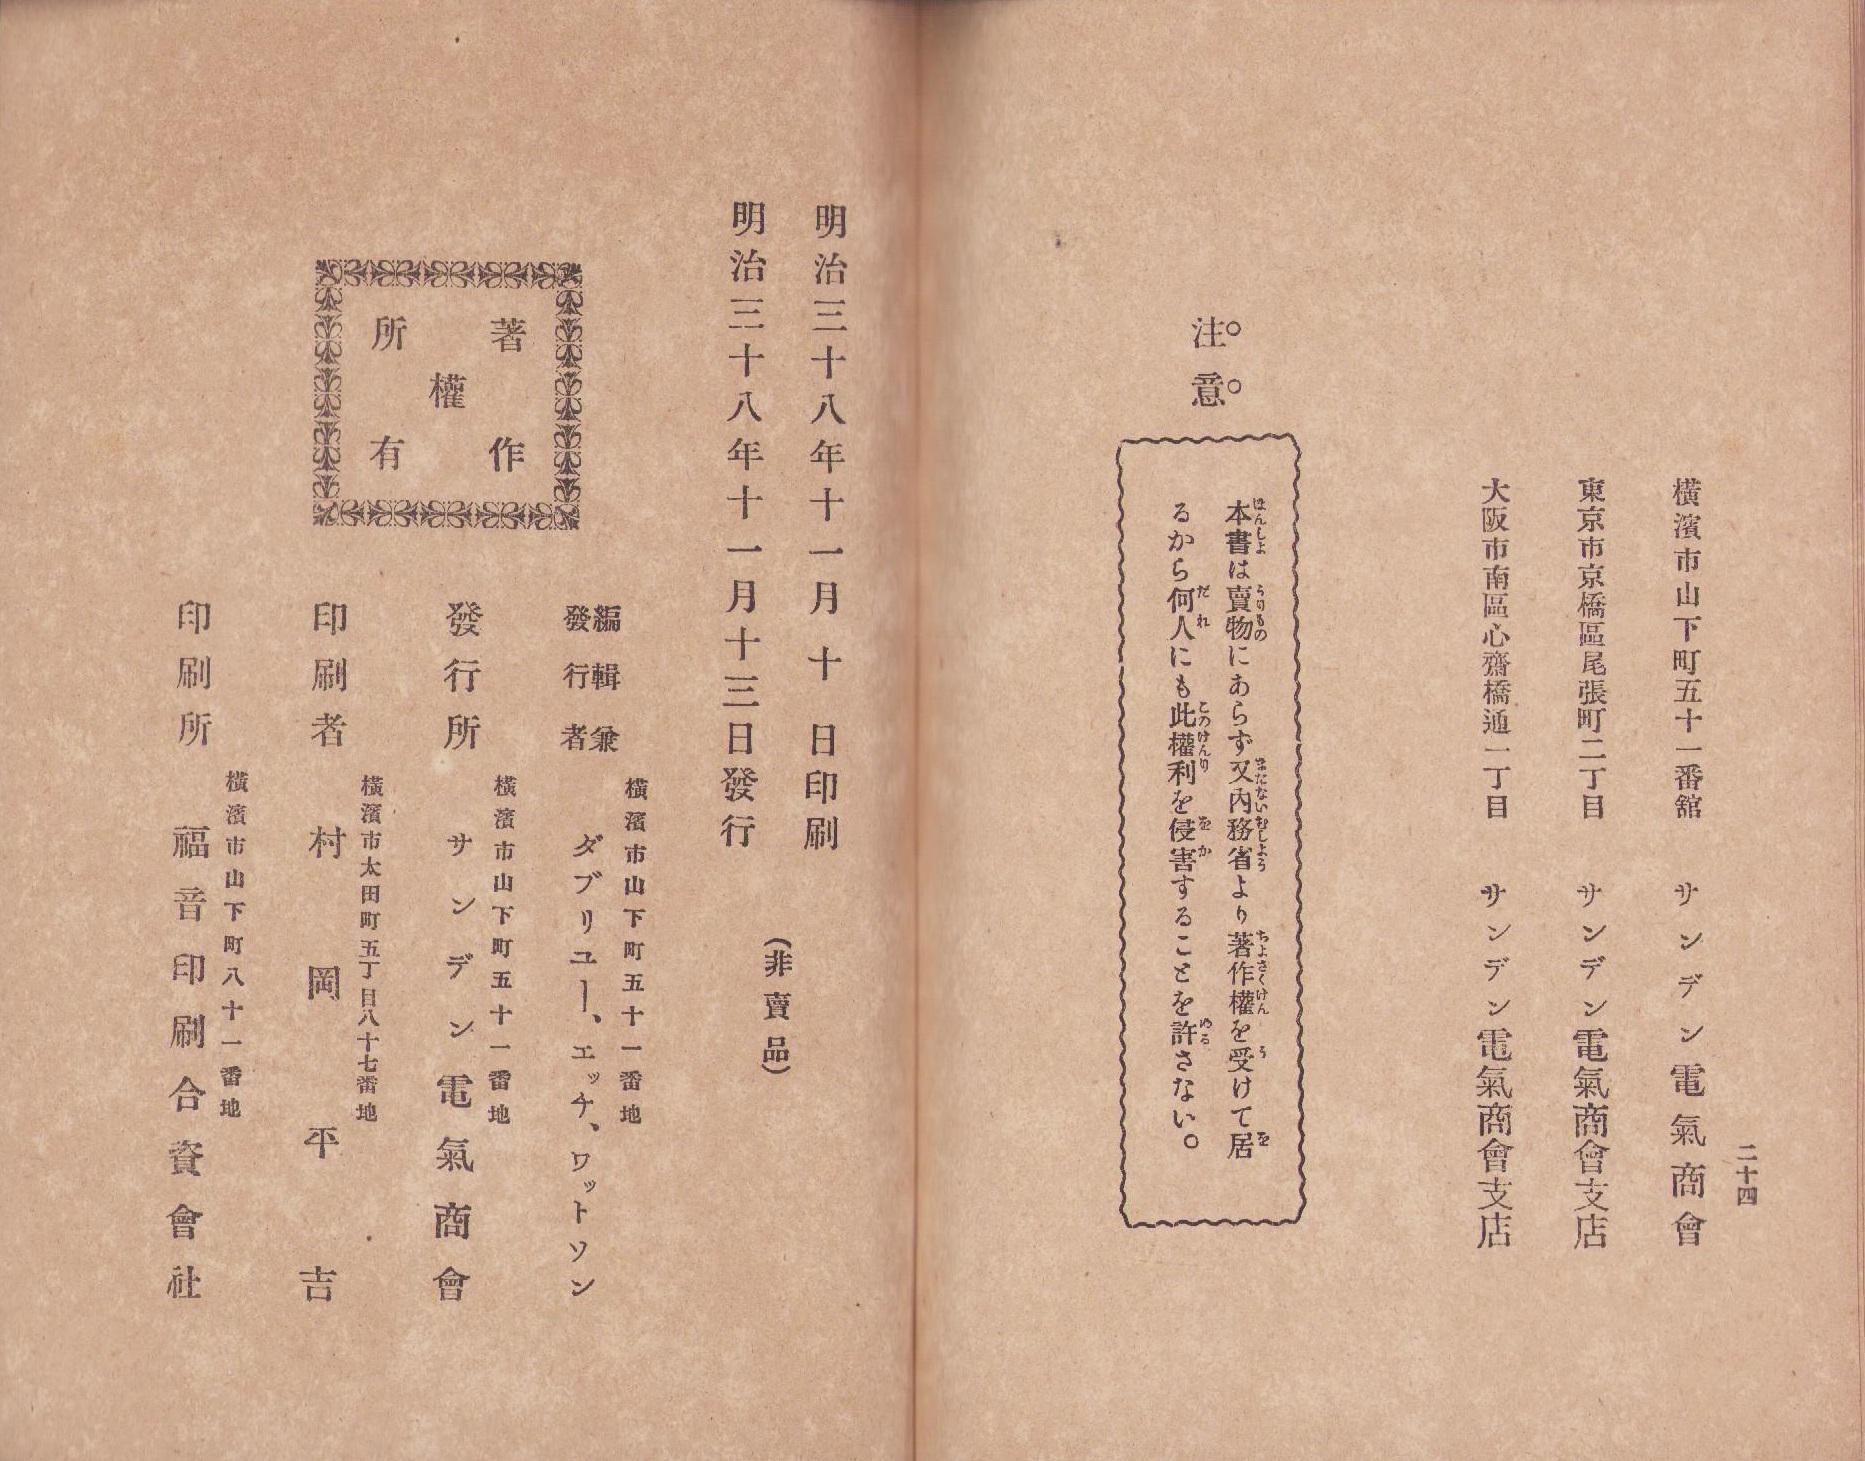 二十四
橫濱市山下町五十一番舘　サンデン電氣商會
東京市京橋區尾張町二丁目　サンデン電氣商會支店
大阪市南區心齋橋通一丁目　サンデン電氣商會支店
注意
本書は賣物にあらず又內務省より著作權を受けて居
るから何人にも此權利を侵害することを許さない。
明治三十八年十一月十日印刷
明治三十八年十一月十三日發行
(非賣品)
著作權所有
編輯兼
發行者
橫濱市山下町五十一番地
ダブリユー、エッチ、ワットソン
發行所
橫濱市山下町五十一番地
サンデン電氣商會
印刷者
橫濱市太田町五丁目八十七番地
村岡平吉
印刷所
橫濱市山下町八十一番地
福音印刷合資會社